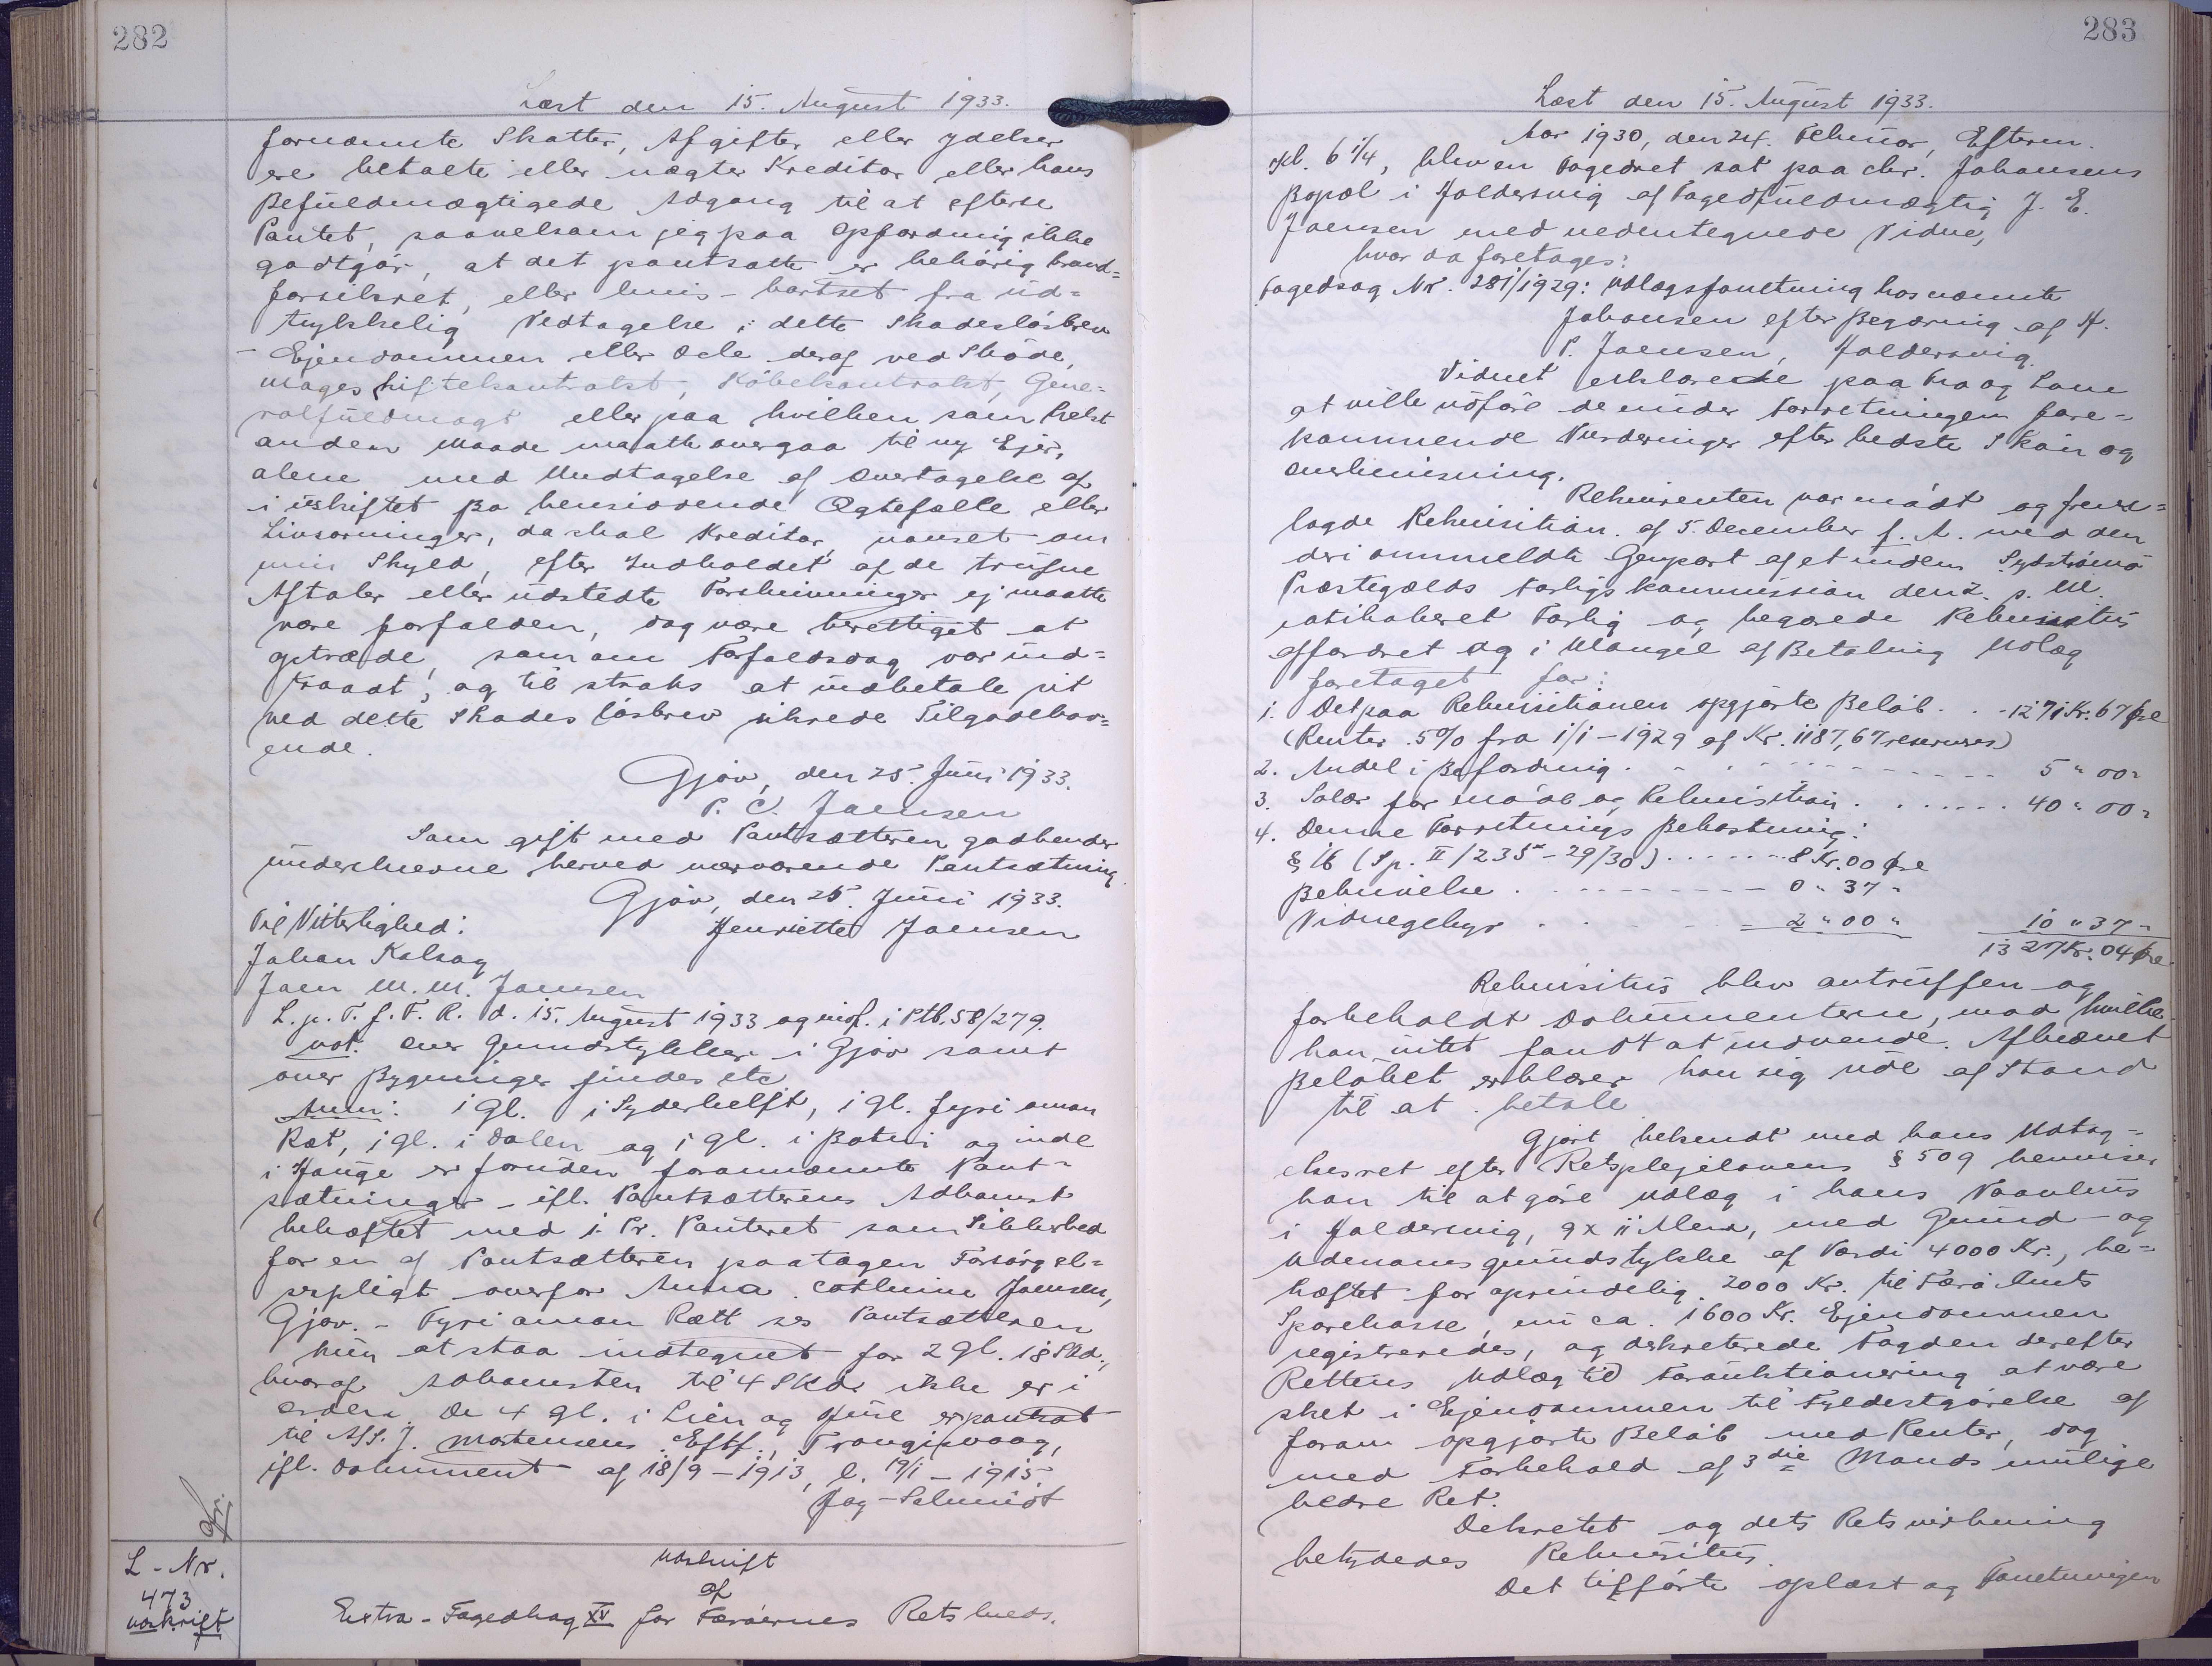 282
Læst den 15. August 1933.
fornævnte Skatter, Afgifter eller Ydelser
ere betalte eller nægter Kreditor eller hans
Befuldmægtigede Adgang til at efterse
Pantet, saavelsom jeg paa Opfordring ikke
godtgør, at det pantsatte er behørig brand=
forsikret, eller hvis - bortset fra ud=
trykkelig Vedtagelse i dette Skadesløsbrev
- Ejendommen eller Dele deraf ved Skøde,
Mageskiftekontrakt, Købekontrakt, Gene=
ralfuldmagt eller paa hvilken som helst
anden Maade maatte overgaa til ny Ejer,
alene med Undtagelse af Overtagelse af
i uskiftet Bo hensiddende Ægtefælle eller
Livsarvinger, da skal Kreditor, uanset om
min Skyld, efter Indholdet af de trufne
Aftaler eller udstedte Forskrivninger ej maatte
være forfalden, dog være berettiget at
getræde, som om Forfaldsdag var ind=
traadt, og til straks at indbetale sit
ved dette Skadesløsbrev sikrede Tilgodehav=
ende.
Gjov, den 25. Juni 1933.
P. C. Joensen
Som gift med Pantsætteren godkender
underskrevne herved nærværende Pantsætning.
Gjov, den 25. Juni 1933.
Til Vitterlighed: Henriette Joensen
Johan Kalsog
Joen M. M. Joensen
L. p. T. f. F. R. d. 15. August 1933 og indf. i Ptb. 58/279.
not. over Grundstykker i Gjov samt
over Bygninger findes etc
Anm: 1 Gl. i Syderhelft, 1 Gl. fyri oman
Ræt, 1 Gl. i Dalen og 1 Gl. i Boteni og inde
i Hauge er foruden forannævnte Pant=
sætninger - ifl. Pantsætterens Adkomst
behæftet med 1. Pr. Panteret som Sikkerhed
for en af Pantsætteren paatagen Forsørgel=
sespligt overfor Anna Cathrine Joensen,
Gjov. - Fyri oman Rætt ses Pantsætteren
kun at staa indtegnet for 2 Gl. 18 Skd.,
hvoraf Adkomsten til 4 Skd. ikke er i
Orden. De 4 Gl. i Lien og Ofuse er pantsat
til Afs. J. Mortensens Eftf., Trangisvaag,
ifl. Dokument af 18/9 - 1913, l. 19/1 - 1915
Jag - Schmidt
L - Nr.
473
Udskrift
Udskrift
af
Extra - Fogedbog XV for Færøernes Retskreds.
283
Læst den 15. August 1933.
Aar 1930, den 24. Februar, Efterm.
Kl. 6 1/4, blev en Fogedret sat paa Chr. Johansens
Bopæl i Haldersvig af Fogedfuldmægtig J. E.
Joensen med nedentegnede Vidne,
hvor da foretages:
Fogedsag Nr. 281/1929: Udlægsforretning hos nævnte
Johansen efter Begæring af H.
P. Joensen, Haldersvig.
Vidnet erklærede paa Tro og Love
at ville udføre de under Forretningen fore=
kommende Vurderinger efter bedste Skøn og
Overbevisning.
Rekvirenten var mødt og frem=
lagde Rekvisition af 5. December f. A. med den
deri ommeldte Genpart af et inden Sydstrømø
Præstegælds Forligskommission den 2. s. M.
ratihaberet Forlig og begærede Rekvisitus
affordret og i Mangel af Betaling Udlæg
foretaget for:
1. Det paa Rekvisitionen opgjorte Beløb . . - 1271 Kr. 67 Øre
(Renter 5% fra 1/1 - 1929 af Kr. 1187,67 reserveres)
2. Andel i Befordring . - - - - - - - 5 " 00 "
3. Salær for Møde og Rekvisition . . . . . . . 40 " 00 "
4. Denne Forretnings Bekostning:
§ 16 (Sp. II/235 - 29/30) . . . . . . . 8 Kr. 00 Øre
Beskrivelse . - - - - - - - 0 " 37 "
Vidnegebyr . . . - - 2 " 00 " 10 " 37 "
1327 Kr. 04 Øre
Rekvisitus blev antruffen og
forbeholdt Dokumenterne, mod hvilke
han intet fandt at indvende. Afkrævet
Beløbet erklærer han sig ude af Stand
til at betale
Gjort bekendt med hans Udtag=
elsesret efter Retsplejelovens § 509 henviser
han til at gøre Udlæg i hans Vaanhus
i Haldersvig, 9 x 11 Alen, med Grund- og
Udenomsgrundstykke af Værdi 4000 Kr., be=
hæftet for oprindelig 2000 Kr. til Færø Amts
Sparekasse, nu ca. 1600 Kr. Ejendommen
registreredes, og dekreterede Fogden derefter
Rettens Udlæg til Forauktionering at være
sket i Ejendommen til Fyldestgørelse af
foran opgjorte Beløb med Renter, dog
med Forbehold af 3die Mands mulige
bedre Ret.
Dekretet og dets Retsvirkning
betydedes Rekvisitus.
Det tilførte oplæst og Forretningen